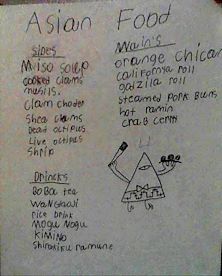 Asian Food
sides
Miso soup
cooked clams
nusils.
clam choder
shea clams
Dead octipus
Live octipus
Shrip
Drincks
BoBa tea
rice Drink
Mogu Nogu
KiMiNo
Shirakiku ramune
Main's
orange chican
californya roll
godzila roll
steamed Pork buns
hot ramin
craB